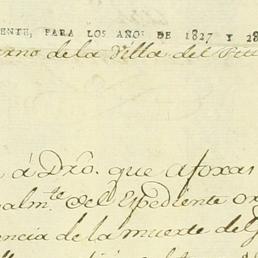 ENTE, PARA LOS AÑOS DE 1827 Y 28
erno de la Villa del
á Dro. que afoxas
alm.te del Expediente or
encia de la muerte del